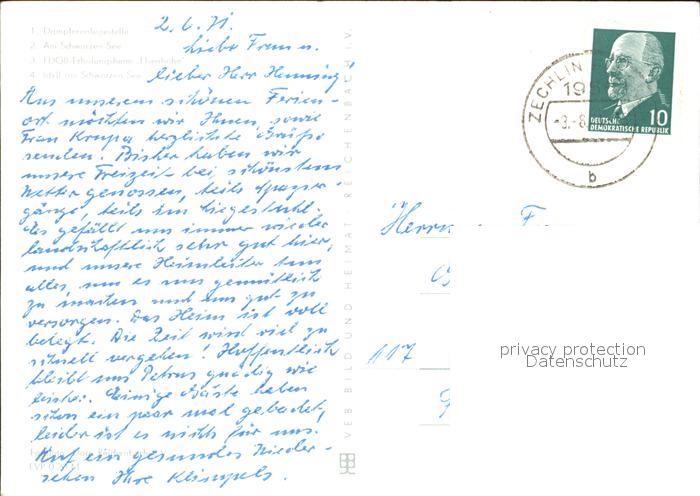 1. Dampferanlegestelle
2. Am Schwarzen See
3. FDGB-Erholungsheim „Elsenhöhe"
4. Idyll am Schwarzen See
2.6.71.
Liebe Frau u.
lieber Herr Henning!
Aus unserem schönen Ferien-
ort möchten wir Ihnen, sowie
Frau Krupa herzliche Grüße
senden. Bisher haben wir
unsere Freizeit bei schönstem
Wetter genossen, teils Spazier-
gänge, teils im Liegestuhl.
Es gefällt uns immer wieder
landschaftlich sehr gut hier,
und unsere Heimleiter tun
alles, um es uns gemütlich
zu machen und uns gut zu
versorgen. Das Heim ist voll
belegt. Die Zeit wird viel zu
schnell vergehen! Hoffentlich
bleibt uns Petrus gnädig wie
bisher. Einige Gäste haben
schon ein paar mal gebadet,
leider ist es nichts für uns.
Auf ein gesundes Wieder-
sehen Ihre Klimpels.
VEB BILD UND HEIMAT REICHENBACH i.V.
ZECHLIN
195
-3.-6.
b
DEUTSCHE
DEMOKRATISCHE REPUBLIK
10
Herrn F
117
privacy protection
Datenschutz